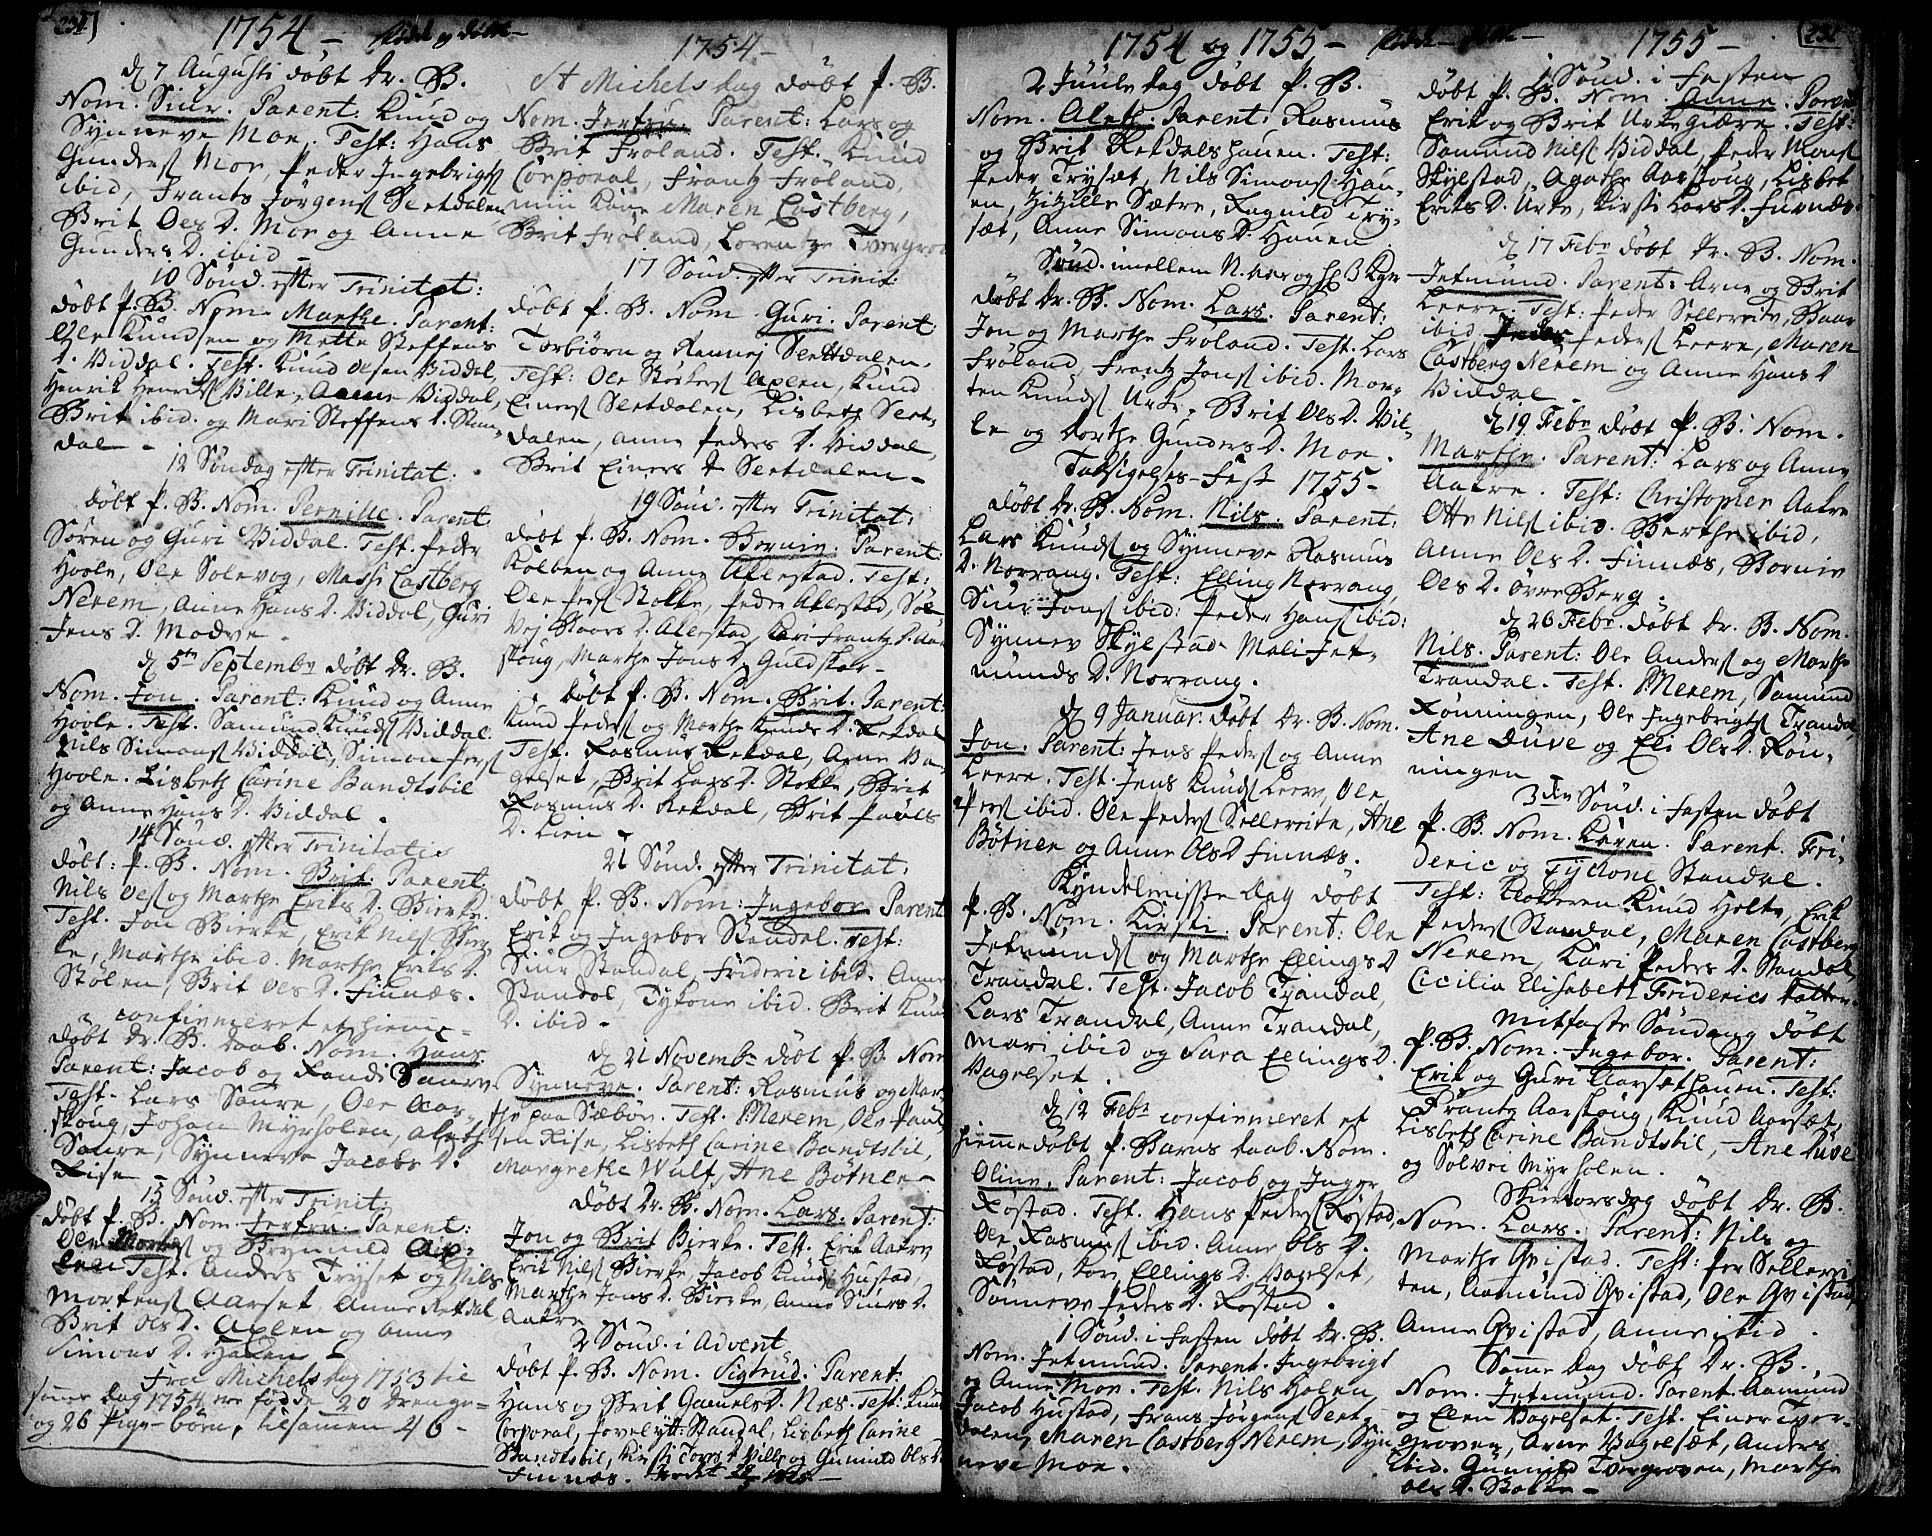 1754 –
d 7 Augusti døbt Dr. B.
Nom. Siur. Parent: Knud og
Synneve Moe. Test: Hans
Gunders Moe, Peder Ingebrigts
ibid, Frants Jørgens Sletdalen
Brit Oles D. Moe og Anne
Gunders D. ibid –
10 Sønd. efter Trinitat:
døbt P. B. Nom. Marthe. Parent:
Ole Knudsen og Mette Steffens
D. Viddal. Test. Knud Olsen Viddal,
Henrik Henrichs Ville, Viddal,
Brit ibid. og Mari Steffens D. Stan-
dal –
12 Søndag efter Trinitat.
døbt P. B. Nom. Pernille. Parent.
Søren og Guri Viddal. Test. Peder
Hoole, Ole Solevog, Massi Castberg
Nerem, Anne Hans D. Viddal, Guri
Jens D. Modve –
d 5te Septembr døbt Dr. B.
Nom. Jon. Parent: Knud og Anne
Hoole. Test. Samund Knuds Viddal.
Nils Simons Viddal, Simon Pers
Hoole. Lisbeth Carine Bandtsbil
og Anne Hans D. Viddal.
14 Sønd. efter Trinitatis
døbt: P. B. Nom. Brit. Parent
Nils Ols og Marthe Eriks D. Bierke.
Test. Jon Bierke, Erik Nils Bier-
ke, Marthe ibid. Marthe Eriks D.
Stølen, Brit Ols D. Finnæs.
confirmeret et hieme-
døbt Dr. B. daab. Nom. Hans
Parent: Jacob og Randi Saure
Test. Lars Saure, Ole Aar-
skoug, Johan Myrholen, Aleth
Saure, Synneve Jacobs D.
Rise –
15 Sønd. efter Trinit:
døbt P. B. Nom. Jertru. Parent:
Ole og Brynnild Ap-
len Test. Anders Tryset og Nils
Mortens Aarset, Anne Rekdal
Brit Ols D. Aplen og Anne
Simons D. Hauen –
Fra Michels dag 1753 til
samme dag 1754 ere fødde 20 drenge-
og 26 Pige-børn, tilsamen 46 –
1754 –
St Michels dag døbt P. B.
Nom. Jertru. Parent: Lars og
Brit Frøland. Test. Knud
Corporal, Frantz Frøland,
min Kone Maren Castberg,
Brit Frøland, Lorentze Tvergrov
17 Sønd. efter Trinit:
døbt P. B. Nom. Guri. Parent
Torbiørn og Rannej Slettdalen.
Test: Ole Størkers Aplen, Knud
Einers Sletdalen, Lisbeth Slet-
dalen, Anne Peders D. Viddal,
Brit Einers D Sletdalen –
19 Sønd. efter Trinitat:
døbt P. B. Nom. Bornie. Parent:
Kolben og Anne Alestad. Test:
Ole Pers Stokke, Peder Alestad, Sol-
vej Baars D. Alestad, Kari Frantz D. Aar-
skoug, Marthe Jons D. Guldsker –
døbt P. B. Nom. Brit. Parent:
Knud Peders og Marthe Knuds D. Rekdal
Test. Rasmus Rekdal, Arne Va-
gelset, Brit Lars D. Stokke, Brit
Rasmus D. Rekdal, Brit Pouls
D. Lien –
21 Sønd. efter Trinitat:
døbt P. B. Nom: Ingebor Parent
Erik og Ingebor Standal. Test:
Siur Standal, Frideric ibid. Anne
Standal, Tykone ibid. Brit Knud
D. ibid –
d 21 Novembr døbt P. B. Nom
Synneve. Parent: Rasmus og Mar-
the paa Sæbøe. Test. P. Nerem, Ole Poul-
sen Rise, Lisbeth Carine Bandtsbil,
Margrethe Wulf, Ane Bøtner –
døbt Dr. B. Nom. Lars. Parent:
Jon og Brit Bierke. Test. Erik Aakre
Erik Nils Bierke, Jacob Knuds Hustad,
Marthe Jons D. Bierke, Anne Siurs D.
Aakre –
2 Sønd. i Advent
døbt P. B. Nom. Sigtrud. Parent:
Hans og Brit Gamels D. Næs. Test: Knud
Corporal, Standal, Lisbeth Carine
Bandtsbil, Kirsti Tores D Ville og Gunnild Ols D.
Finnæs.
1754 og 1755 –
2 Juule dag døbt P. B.
Nom. Aleth. Parent: Rasmus
og Brit Rekdalshauen. Test:
Peder Trysæt, Nils Simons Hau-
en, Zizille Sætre, Ragnild Try-
sæt, Anne Simons D. Hauen
Sønd. imellem N. Aar og H. 3 Kgr
døbt Dr. B. Nom. Lars. Parent:
Jon og Marthe Frøland. Test. Lars
Frøland, Frantz Jons ibid. Mor-
ten Knuds Urke, Brit Ols D. Vil-
le og Dorthe Gunders D. Moe.
Taksigelses-Fest 1755 –
døbt Dr. B. Nom. Nils. Parent:
Lars Knuds og Synneve Rasmus
D. Norrang. Test: Elling Norrang
Siur Jons ibid: Peder Hans ibid:
Synnev Skylstad. Mali Jet-
munds D. Norrang.
d 9 Januar. døbt Dr. B. Nom.
Jon. Parent: Jens Peders og Anne
Leere. Test. Jens Knuds Leere, Ole
Pers ibid. Ole Peders Sellereite, Ane
Bøtner og Anne Ols D Finnæs.
Kyndelmisse Dag døbt
P. B. Nom. Kirsti. Parent: Ole
Jetmunds og Marthe Ellings D
Trandal. Test. Jacob Trandal,
Lars Trandal, Anne Trandal,
Mari ibid og Sara Ellings D.
Vagelset.
d 12 Febr confirmeret et
hiemmedøbt P. Barns daab. Nom.
Oline, Parent: Jacob og Inger
Røstad. Test. Hans Peders Røstad,
Ole Rasmus ibid. Anne Ols D.
Røstad, Kari Ellings D. Vagelset,
Sønneve Peders D. Røstad.
1 Sønd. i Fasten døbt Dr. B.
Nom. Jetmund. Parent. Ingebrigt
og Anne Moe. Test. Nils Holen,
Jacob Hustad, Frans Jørgens Slet-
dalen, Maren Castberg Nerem, Syn-
neve Moe.
1755 –
1 Sønd. i Fasten
døbt P. B. Nom. Anne. Parent
Erik og Brit Urkegiære. Test:
Samund Nils Viddal, Peder Mons
Skylstad, Agathe Aarskoug, Lisbet
Eriks D. Urke, Kirsti Lars D. Furnæs.
d 17 Febr døbt Dr. B. Nom.
Jetmund. Parent: Arne og Brit
Leere. Test: Peder Sellereite, Baar
ibid. Peders Leere, Maren
Castberg Nerem og Anne Hans D
Viddal –
d 19 Febr døbt P. B. Nom.
Marthe. Parent: Lars og Anne
Aakre. Test: Christopher Aakre
Otte Nils ibid. Berthe ibid,
Anne Ols D. Finnæs, Bornie
Ols D. Øvre Berg.
d 26 Febr. døbt Dr. B. Nom.
Nils. Parent: Ole Anders og Marthe
Trandal. Test. P. Nerem, Samund
Rønningen, Ole Ingebrigts Trandal
Ane Duve og Eli Ols D. Røn-
ningen
3die Sønd. i Fasten døbt
P. B. Nom. Karen. Parent. Fri-
deric og Tyckone Standal.
Test: Klokkeren Knud Holte, Erik
Peders Standal, Maren Castberg
Nerem, Kari Peders D. Standal,
Cicilia Elisabeth Friderics Datter.
Mitfaste Søndag døbt
P. B. Nom. Ingebor. Parent:
Erik og Guri Aarsethauen. Test:
Frantz Aarskoug, Knud Aarsæt,
Lisbeth Carine Bandtsbil, Ane Duve
og Solvei Myrholen.
Skiertorsdag døbt Dr. B.
Nom. Lars. Parent: Nils og
Marthe Qvistad. Test: Per Sellerei-
ten, Aamund Qvistad, Ole Qvistad,
Anne Qvistad, Anne ibid.
Samme dag døbt Dr. B.
Nom. Jetmund. Parent. Aamund
og Elen Vagelset. Test. Einer Tver-
groven, Arne Vagelsæt, Anders
ibid. Gunnild Tvergroven, Marthe
Ols D. Stokke –